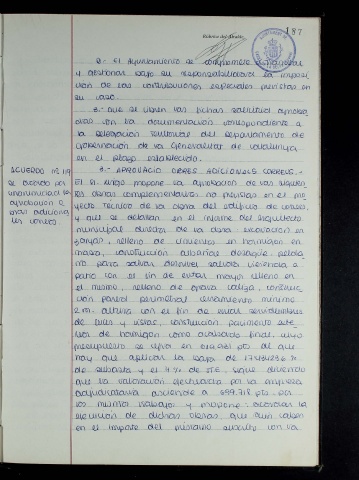 187
Rúbrica del Alcalde
2.- El Ayuntamiento se compromete a
y gestionar bajo su responsabilidad la imposi
ción de las contribuciones especiales previstas en
su caso.
3.- que se lleven las fichas solicitud
con la documentación correspondiente a
la Delegación Territorial del Departamento de
Gobernación de la Generalitat de Catalunya
en el plazo establecido.
ACUERDO nº 119
Se acuerda por
unanimidad la
aprobación
obras adicionales
4.- APROBACIO OBRES ADICIONALS CORREUS.-
El Sr. propone la aprobación de las siguien
tes obras complementarias no previstas en el pro
yecto técnico de la obra del edificio de correos
y que se detallan en el informe del Arquitecto
municipal director de la obra: excavación en
zanjas, relleno de cimientos en hormigón en
masa, construcción
para salvar desnivel salida vivienda a
patio con el fin de evitar mayor relleno en
el mismo, relleno de caliza, construc
ción pared perimetral cerramiento mínimo
2 m. altura con el fin de evitar servidumbres
de luces y vistas, construcción pavimento
de hormigón como acabado final, cuyo
presupuesto se cifra en pts al que
hay que aplicar la baja de
de subasta y el % de sigue diciendo
que la valoración efectuada por la empresa
adjudicataria asciende a 599.718 pts por
los mismos trabajos y propone: acordar la
ejecución de dichas obras, que aun caben
en el importe del préstamo suscrito con la